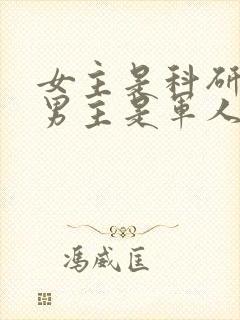 女主是科研
男主是军人
冯威匡